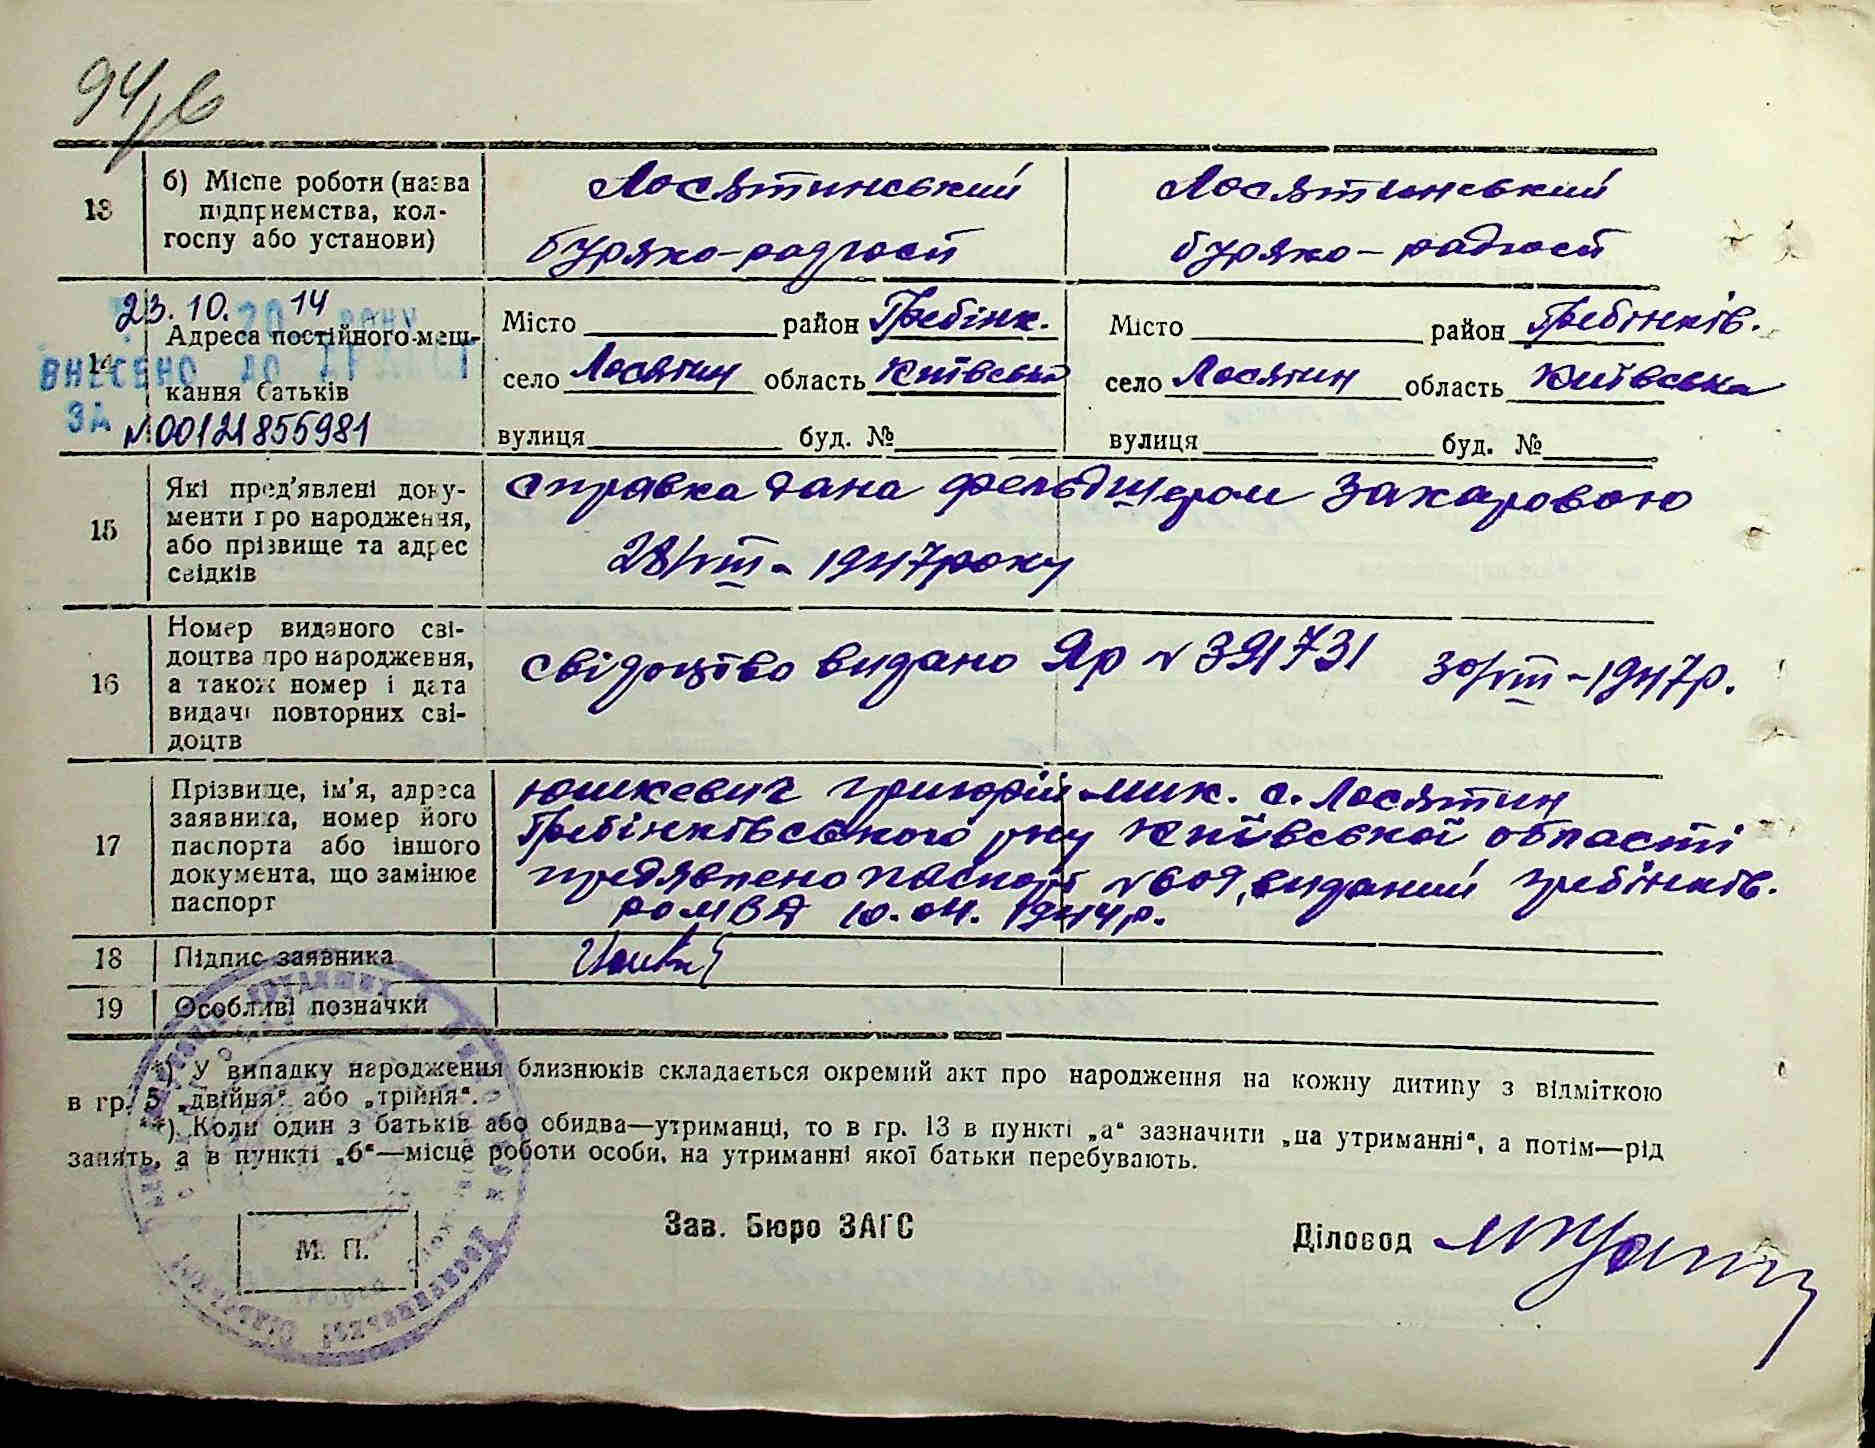 94/б
13
б) Місце роботи (назва підприємства, колгоспу або установи)
Лосятинський
буряко-радгосп
Лосятинський
буряко-радгосп
23.10. 2014 РОКУ
ВНЕСЕНО ДО
ЗА №00121855981
14
Адреса постійного мешкання батьків
Місто район Гребінк.
село Лосятин область Київська
вулиця буд. №
Місто район Гребінків.
село Лосятин область Київська
вулиця буд. №
15
Які пред'явлені документи про народження, або прізвище та адрес свідків
Справка дана фельдшером Захаровою
28/VIII - 1947 року
16
Номер виданого свідоцтва про народження, а також номер і дата видачі повторних свідоцтв
Свідоцтво видано Яр № 391731 30/VIII - 1947 р.
17
Прізвище, ім'я, адреса заявника, номер його паспорта або іншого документа, що замінює паспорт
Юшкевич Григорій Мик. с. Лосятин
Гребінківського р-ну Київської області
предявлено паспорт № 609, виданий Гребінків.
РОМВД 10.04. 1944 р.
18
Підпис заявника
19
Особливі позначки
*) У випадку народження близнюків складається окремий акт про народження на кожну дитину з відміткою
в гр. 5 „двійня“ або „трійня“.
**) Коли один з батьків або обидва—утриманці, то в гр. 13 в пункті „а“ зазначити „на утриманні“, а потім—рід
занять, а в пункті „б“—місце роботи особи, на утриманні якої батьки перебувають.
М. П.
Зав. Бюро ЗАГС
Діловод